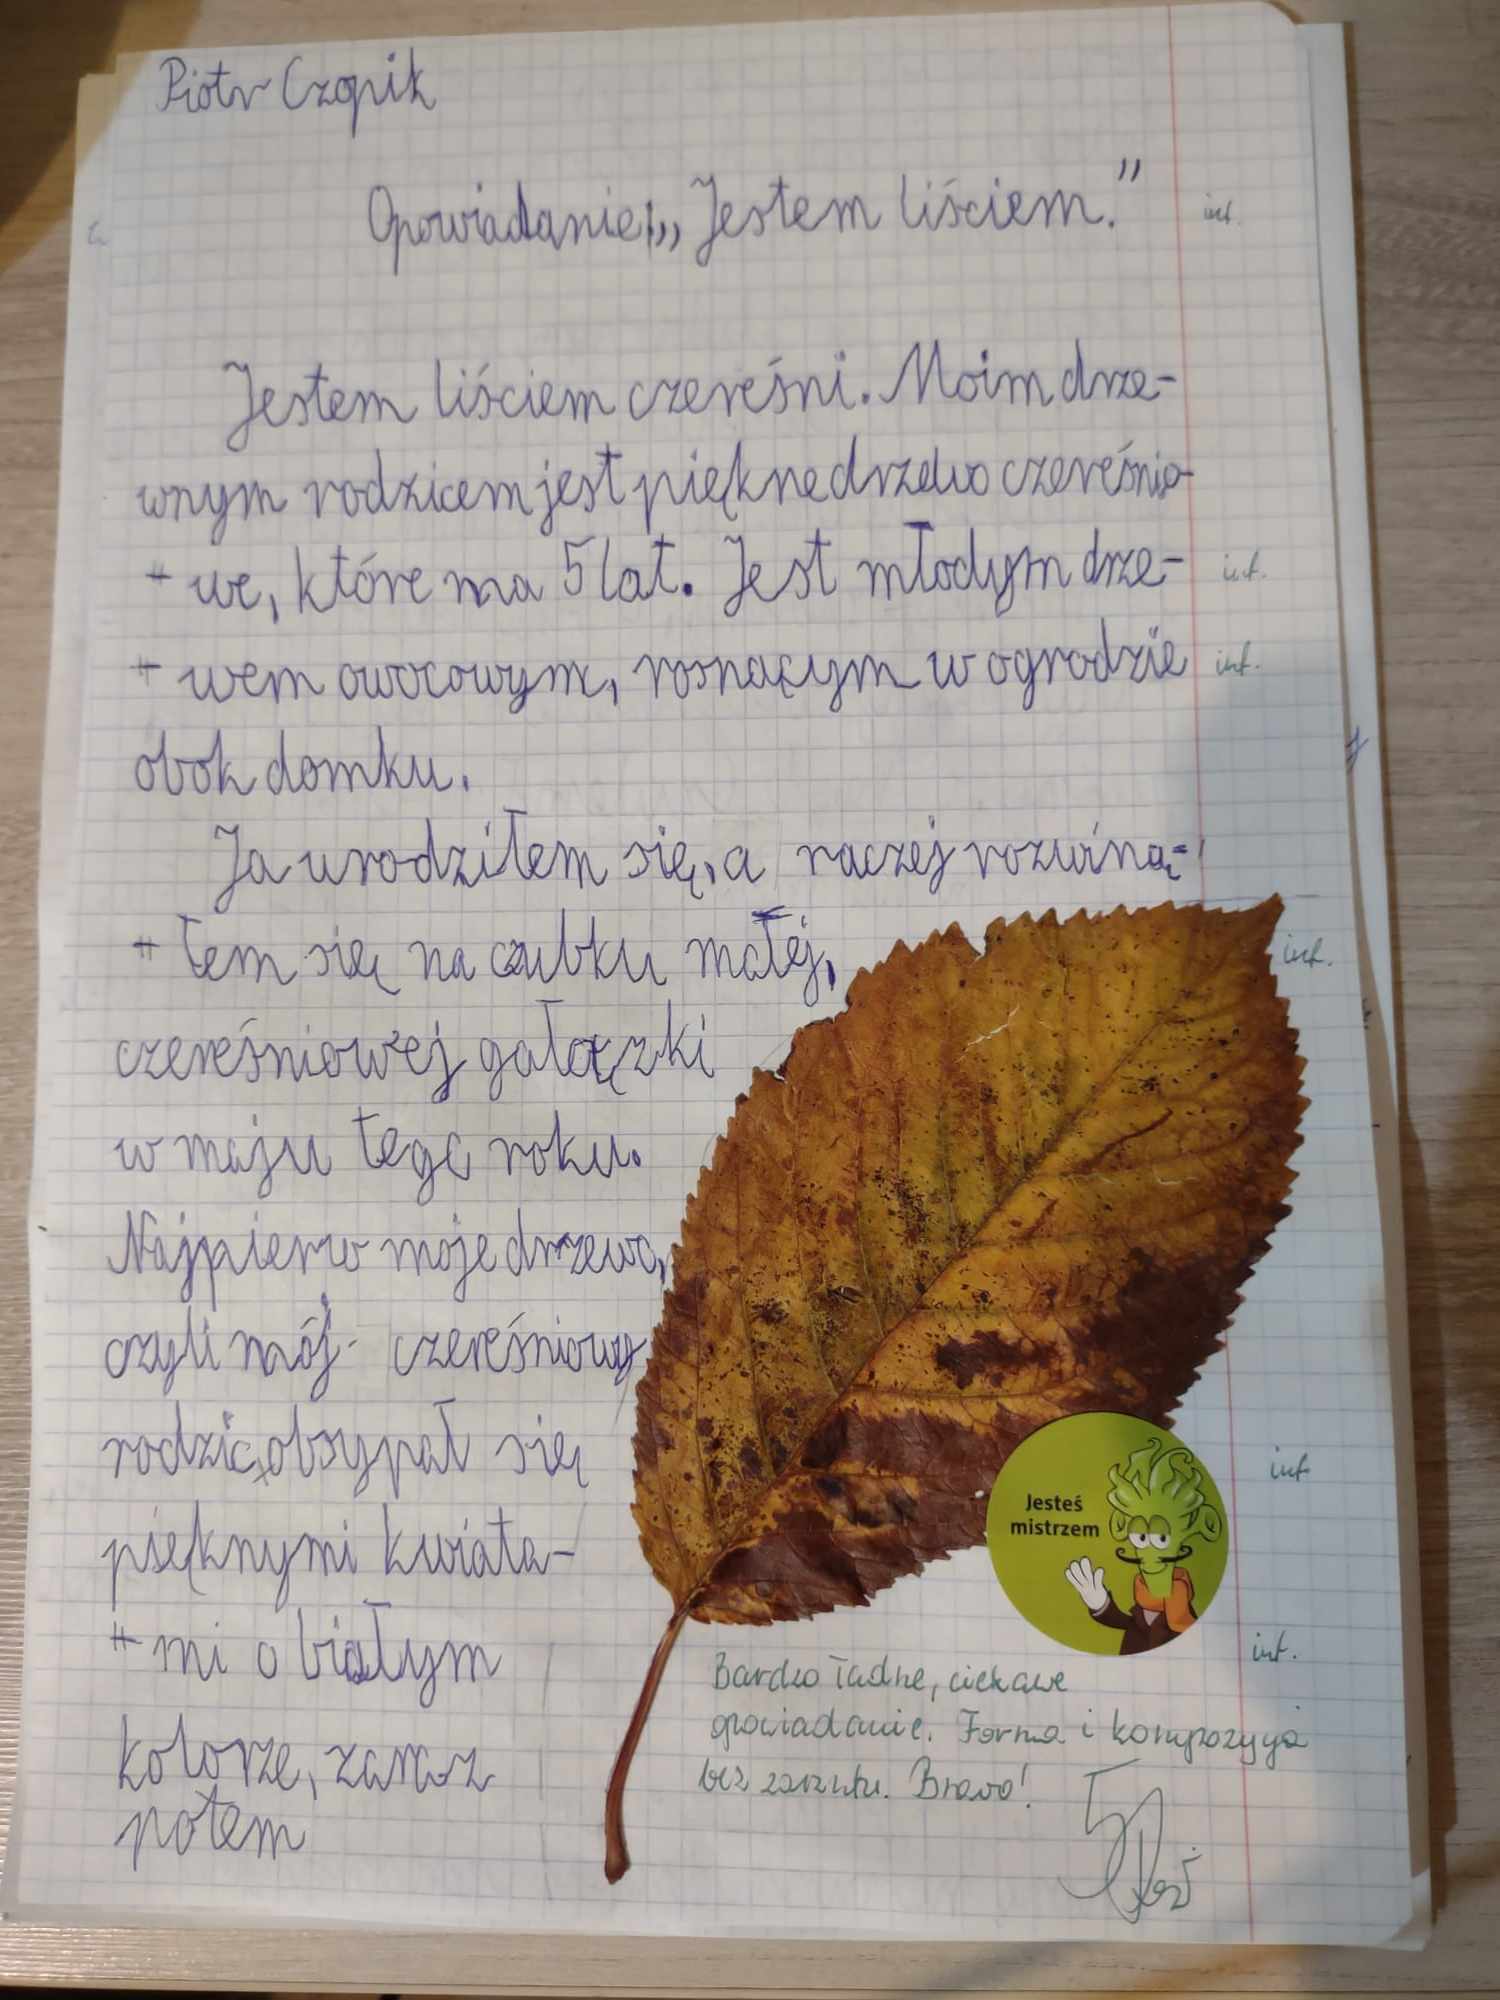 Piotr Czopik
Opowiadanie: „Jestem liściem."
int.
Jestem liściem czereśni. Moim drze-
wnym rodzicem jest piękne drzewo czereśnio-
we, które ma 5 lat. Jest młodym drze-
int.
wem owocowym, rosnącym w ogrodzie
int.
obok domku.
Ja urodziłem się, a raczej rozwiną-
łem się na czubku małej,
int.
czereśniowej gałązki
w maju tego roku.
Najpierw moje drzewo,
czyli mój czereśniowy
rodzic, obsypał się
int
pięknymi kwiata-
mi o białym
int.
kolorze, zaraz
potem
Jesteś
mistrzem
Bardzo ładne, ciekawe
opowiadanie. Forma i kompozycja
bez zarzutu. Brawo!
5